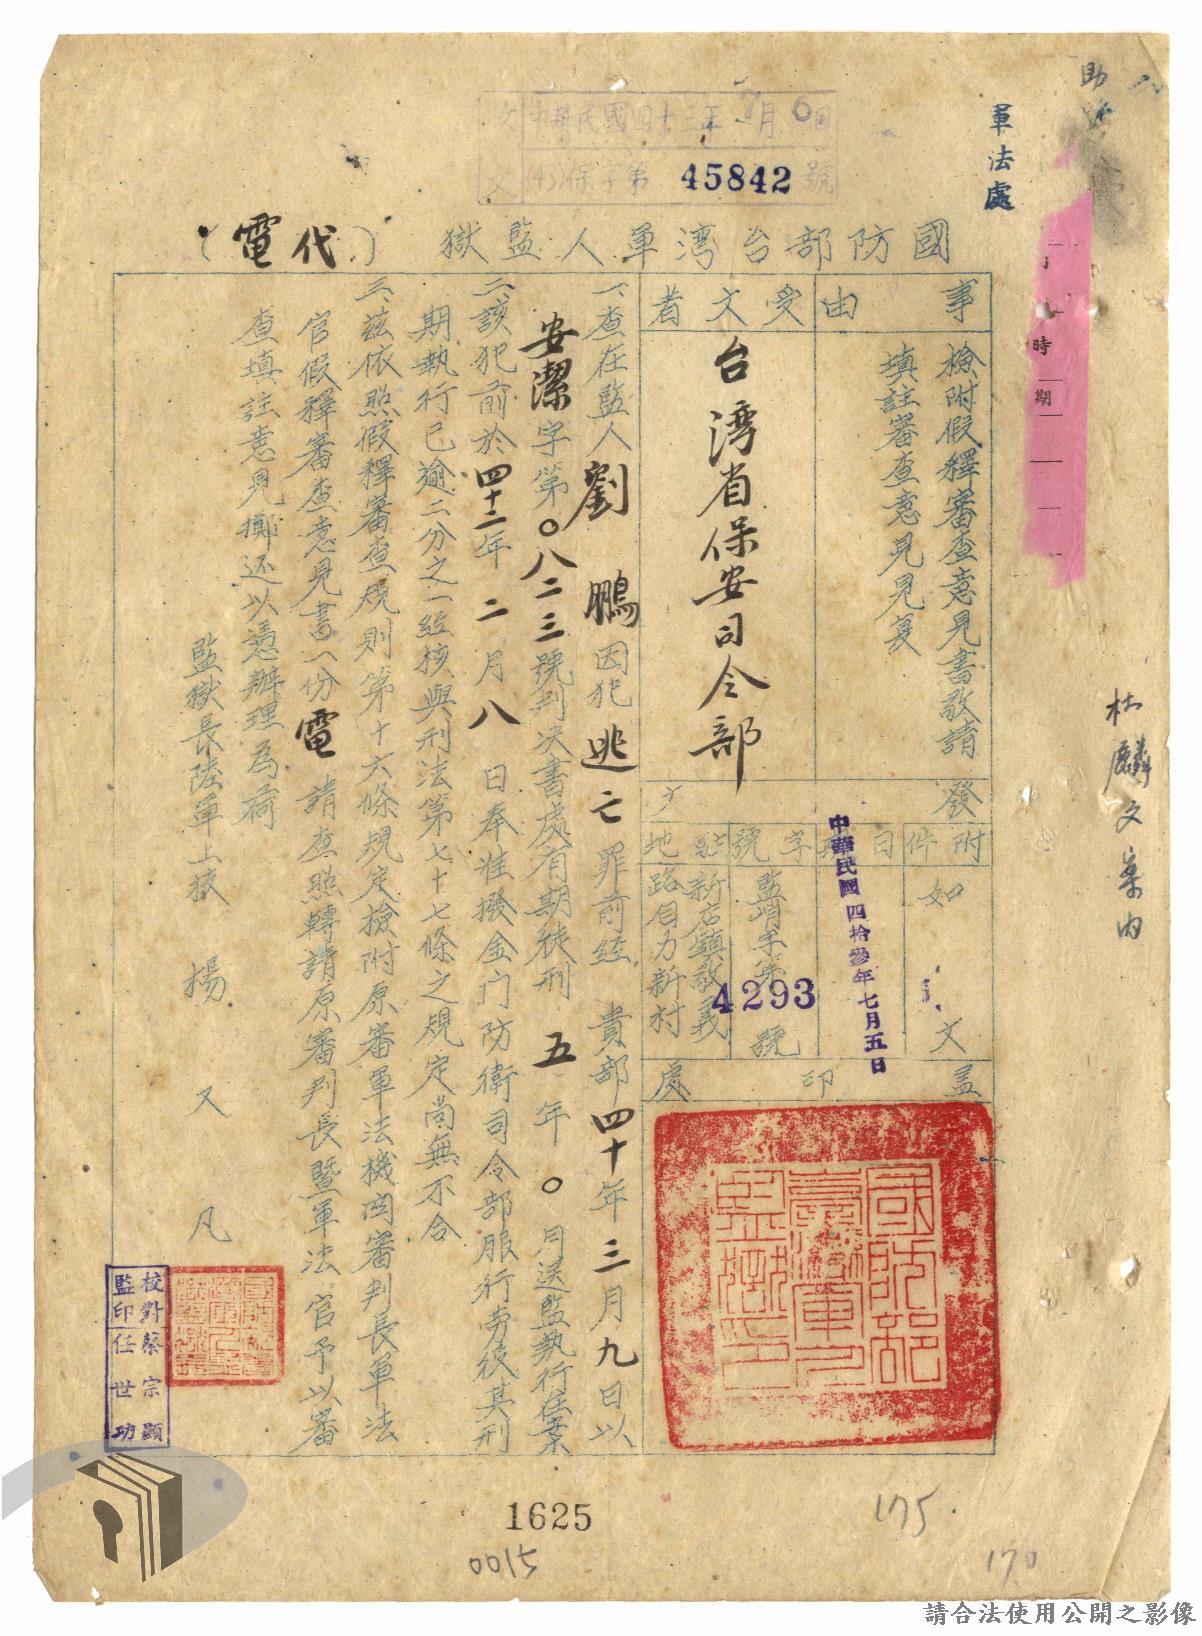 軍法處
中華民國四十三年7月6日
(43)保字第45842號
國防部台湾軍人監獄(代電)
事由
檢附假釋審查意見書敬請
填註審查意見見复
受文者
台湾省保安司令部
附件
如文
發文
日期
中華民國四拾參年七月五日
字號
監須字第4293號
駐地
新店鎮敬義
路自力新村
蓋印處
國防部臺灣軍人監獄印
一、查在監人劉鵬因犯逃亡罪前經 貴部四十年三月九日以
安潔字第〇八二三號判決書處有期徒刑五年〇月送監執行在案
二、該犯前於四十二年二月八日奉准撥金门防衛司令部服行勞役其刑
期執行已逾二分之一經核與刑法第七十七條之規定尚無不合
三、茲依照假釋審查規則第十六條規定檢附原審軍法機関審判長軍法
官假釋審查意見書一份電請查照轉請原審判長暨軍法官予以審
查填註意見擲还以憑辦理為荷
監獄長陸軍上校 楊又凡
校對蔡宗顯
監印任世功
杜麟文案内
時
期
1625
0015
175
170
請合法使用公開之影像